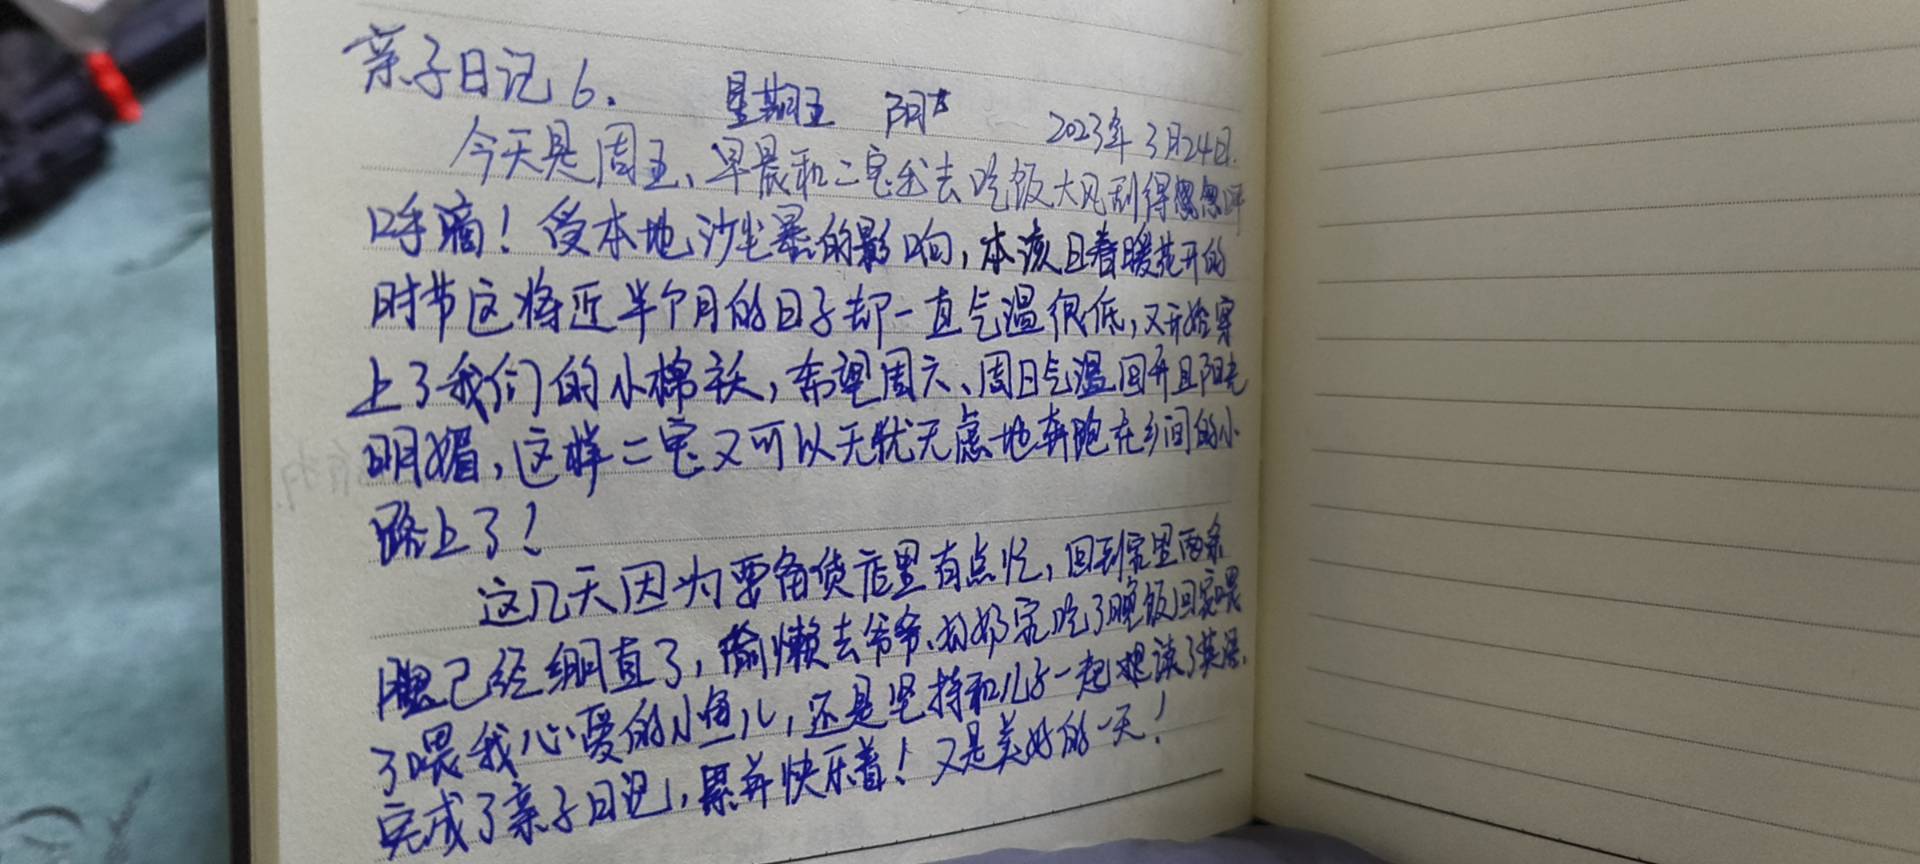 亲子日记6. 星期五 阴 2023年3月24日.
今天是周五、早晨和二宝去吃饭大风刮得
呼嘀!受本地沙尘暴的影响,本该且春暖花开的
时节这将近半个月的日子却一直气温很低,又开始穿
上了我们的小棉袄,希望周六、周日气温回升且阳光
明媚,这样二宝又可以无忧无虑地奔跑在乡间的小
路上了!
这几天因为要备货店里有点忙,回到家里两条
腿已经绷直了,偷懒去爷爷、奶奶家吃了晚饭回家喂
了喂我心爱的小鱼儿,还是坚持和儿子一起读了英语.
完成了亲子日记,累并快乐着!又是美好的一天!